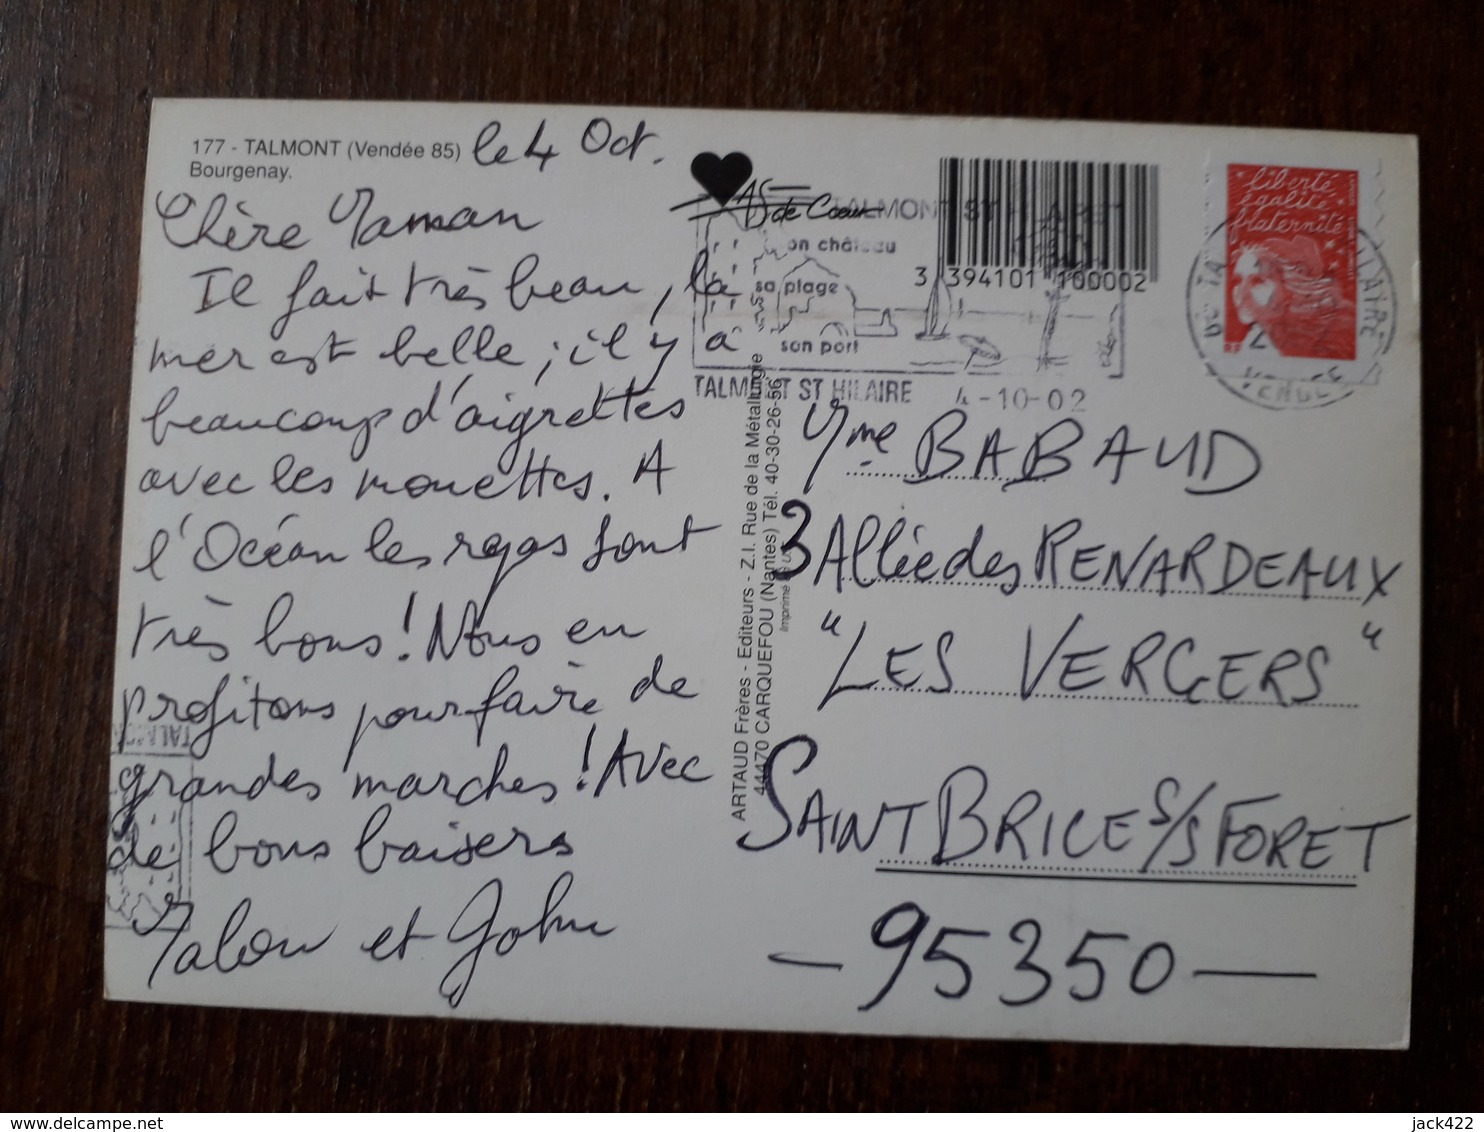 177 - TALMONT (Vendée 85)
Bourgenay.
le 4 Oct.
Chère Maman
Il fait très beau, la
mer est belle ; il y a
beaucoup d'aigrettes
avec les mouettes. A
l'Océan les repas sont
très bons ! Nous en
profitons pour faire de
grandes marches ! Avec
de bons baisers
Malou et John
AS de Coeur
TALMONT ST HILAIRE
son château
sa plage
son port
TALMONT ST HILAIRE 4-10-02
3 394101 100002
liberté
égalité
fraternité
RF
ARTAUD Frères - Editeurs - Z.I. Rue de la Métallurgie
44470 CARQUEFOU (Nantes) Tél. 40-30-26-56
Mme BABAUD
3 Allée des RENARDEAUX
"LES VERGERS"
SAINT BRICE S/S FORET
- 95350 -
jack422